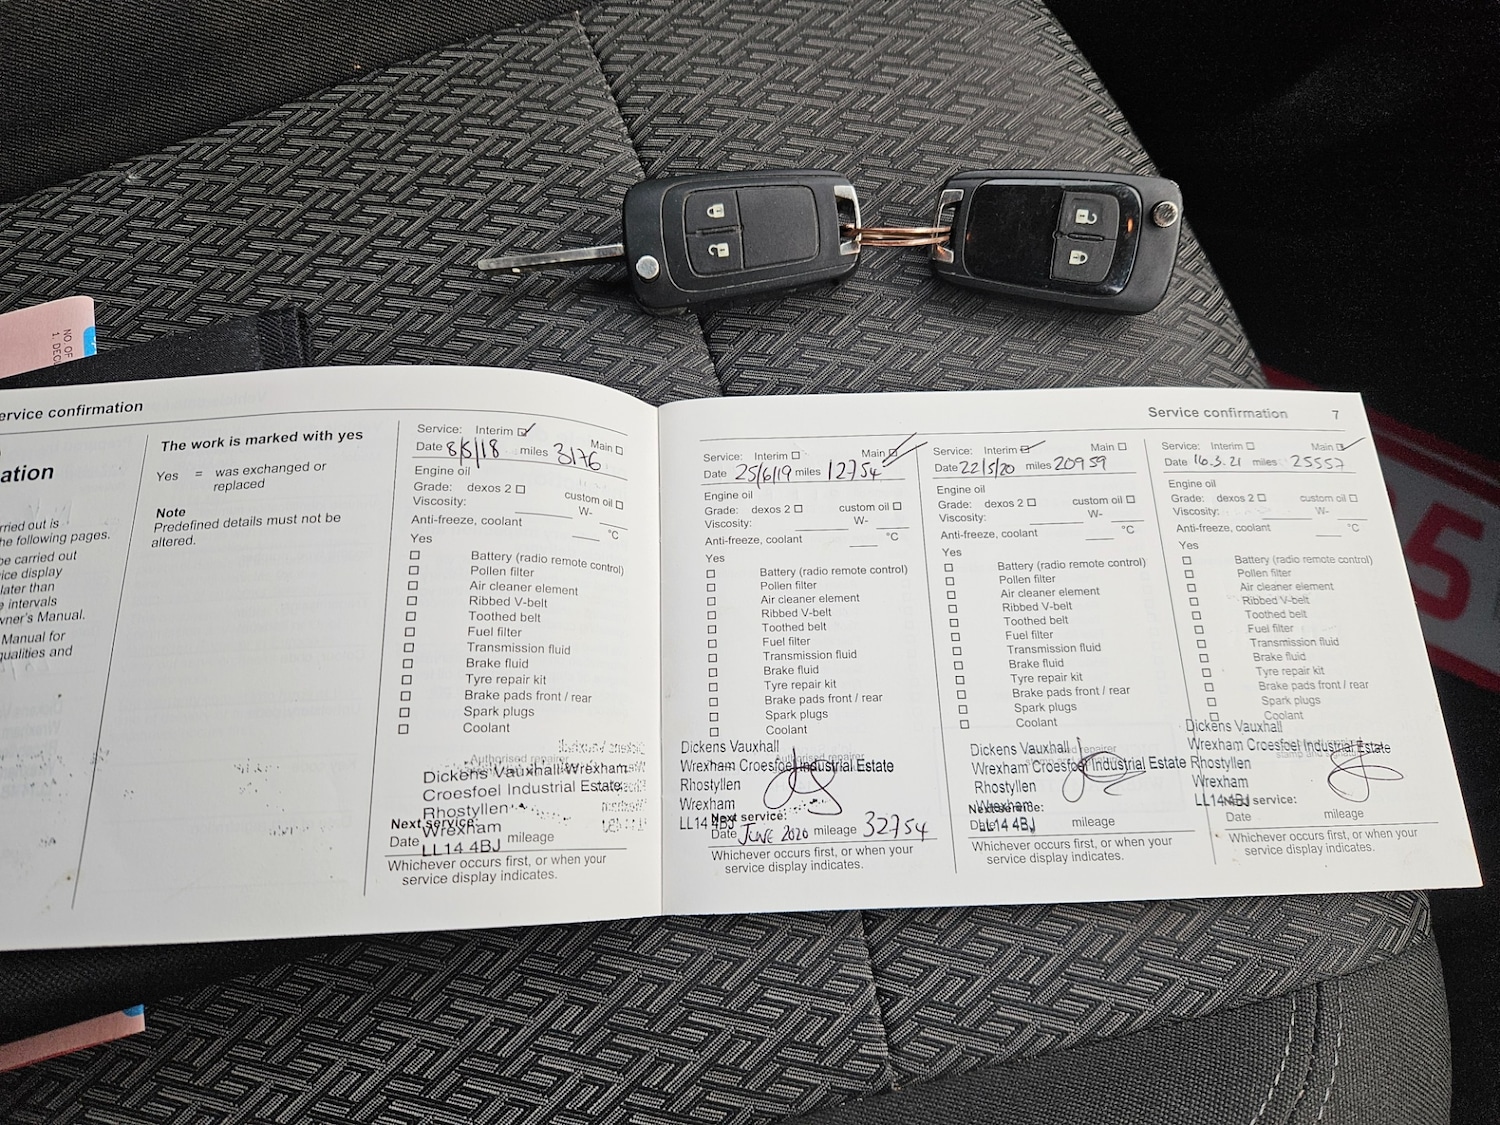 NO OF
1. DEC
ervice confirmation
ation
rried out is
he following pages.
be carried out
ice display
later than
e intervals
wner's Manual.
Manual for
qualities and
The work is marked with yes
Yes = was exchanged or
replaced
Note
Predefined details must not be
altered.
Service: Interim Main
Date 8/5/18 miles 3176
Engine oil
Grade: dexos 2 custom oil
Viscosity: W-
Anti-freeze, coolant °C
Yes
Battery (radio remote control)
Pollen filter
Air cleaner element
Ribbed V-belt
Toothed belt
Fuel filter
Transmission fluid
Brake fluid
Tyre repair kit
Brake pads front / rear
Spark plugs
Coolant
Authorised repairer
Dickens Vauxhall Wrexham
Croesfoel Industrial Estate
Rhostyllen
Next service:
Wrexham
Date LL14 4BJ mileage
Whichever occurs first, or when your
service display indicates.
Service confirmation 7
Service: Interim Main
Date 25/6/19 miles 12754
Engine oil
Grade: dexos 2 custom oil
Viscosity: W-
Anti-freeze, coolant °C
Yes
Battery (radio remote control)
Pollen filter
Air cleaner element
Ribbed V-belt
Toothed belt
Fuel filter
Transmission fluid
Brake fluid
Tyre repair kit
Brake pads front / rear
Spark plugs
Coolant
Dickens Vauxhall
Wrexham Croesfoel Industrial Estate
Rhostyllen
Wrexham
LL14 4BJ
Next service:
Date JUNE 2020 mileage 32754
Whichever occurs first, or when your
service display indicates.
Service: Interim Main
Date 22/5/20 miles 20959
Engine oil
Grade: dexos 2 custom oil
Viscosity: W-
Anti-freeze, coolant °C
Yes
Battery (radio remote control)
Pollen filter
Air cleaner element
Ribbed V-belt
Toothed belt
Fuel filter
Transmission fluid
Brake fluid
Tyre repair kit
Brake pads front / rear
Spark plugs
Coolant
Dickens Vauxhall
Wrexham Croesfoel Industrial Estate
Rhostyllen
Wrexham
Next service:
Date LL14 4BJ mileage
Whichever occurs first, or when your
service display indicates.
Service: Interim Main
Date 16.3.21 miles 25557
Engine oil
Grade: dexos 2 custom oil
Viscosity: W-
Anti-freeze, coolant °C
Yes
Battery (radio remote control)
Pollen filter
Air cleaner element
Ribbed V-belt
Toothed belt
Fuel filter
Transmission fluid
Brake fluid
Tyre repair kit
Brake pads front / rear
Spark plugs
Coolant
Dickens Vauxhall
Wrexham Croesfoel Industrial Estate
Rhostyllen
Wrexham
LL14 4BJ
Next service:
Date mileage
Whichever occurs first, or when your
service display indicates.
5